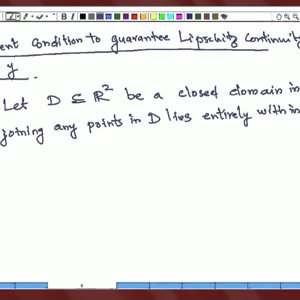 ent condition to guarantee Lipschitz Continuity
y.
Let D ⊆ ℝ² be a closed domain in
joining any points in D lies entirely within